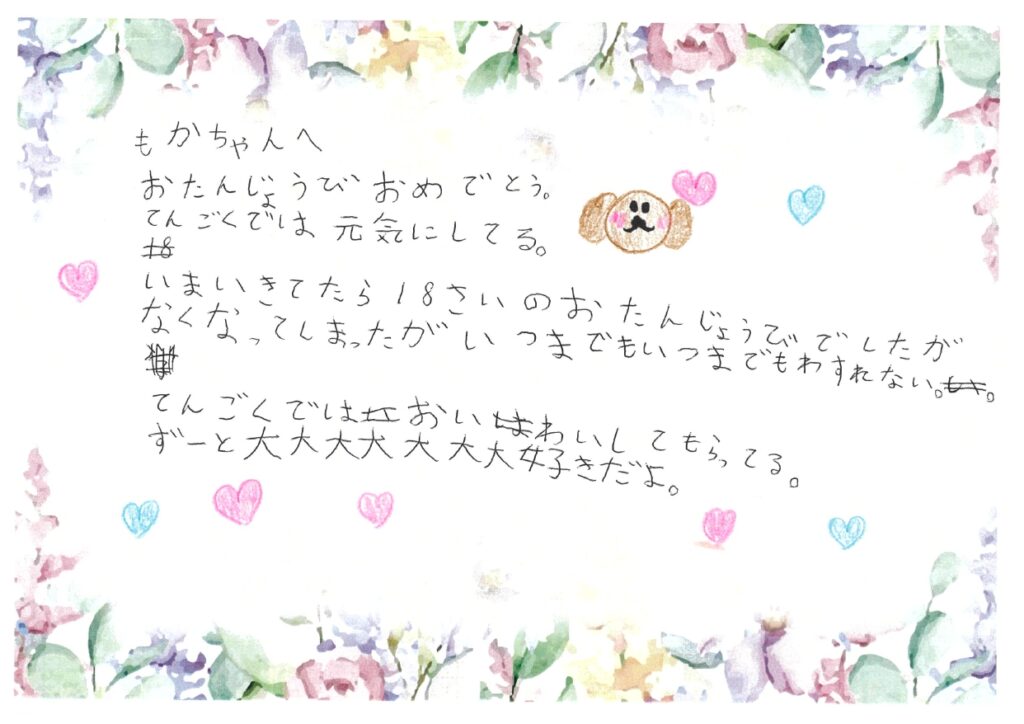 もかちゃんへ
おたんじょうび おめでとう。
てんごくでは 元気にしてる。
いまいきてたら18さいのおたんじょうびでしたが
なくなってしまったがいつまでもいつまでもわすれない。
てんごくではおいわいしてもらってる。
ずーと大大大犬犬大大好きだよ。